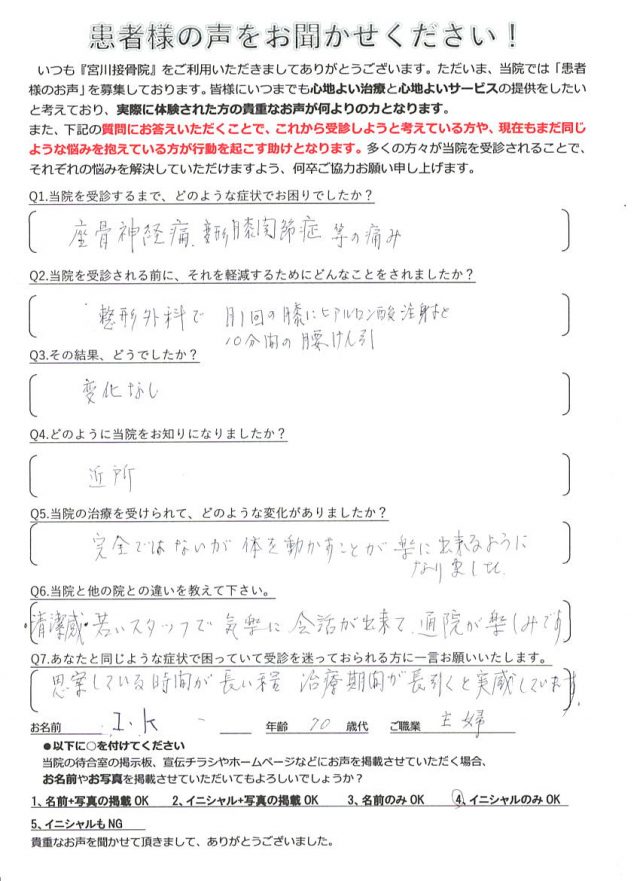 患者様の声をお聞かせください！
いつも『宮川接骨院』をご利用いただきましてありがとうございます。ただいま、当院では「患者
様のお声」を募集しております。皆様にいつまでも心地よい治療と心地よいサービスの提供をしたい
と考えており、実際に体験された方の貴重なお声が何よりの力となります。
また、下記の質問にお答えいただくことで、これから受診しようと考えている方や、現在もまだ同じ
ような悩みを抱えている方が行動を起こす助けとなります。多くの方々が当院を受診されることで、
それぞれの悩みを解決していただけますよう、何卒ご協力お願い申し上げます。
Q1.当院を受診するまで、どのような症状でお困りでしたか？
座骨神経痛、変形膝関節症 等の痛み
Q2.当院を受診される前に、それを軽減するためにどんなことをされましたか？
整形外科で 月1回の膝にヒアルロン酸注射など
10分間の腰けん引
Q3.その結果、どうでしたか？
変化なし
Q4.どのように当院をお知りになりましたか？
近所
Q5.当院の治療を受けられて、どのような変化がありましたか？
完全ではないが 体を動かすことが 楽に出来るように
なりました
Q6.当院と他の院との違いを教えて下さい。
・清潔感・若いスタッフで 気楽に 会話が出来て、通院が楽しみです
Q7.あなたと同じような症状で困っていて受診を迷っておられる方に一言お願いいたします。
思案している時間が長い程 治療期間が長引くと実感しています。
お名前 I.K 年齢 70 歳代 ご職業 主婦
●以下に○を付けてください
当院の待合室の掲示板、宣伝チラシやホームページなどにお声を掲載させていただく場合、
お名前やお写真を掲載させていただいてもよろしいでしょうか？
1、名前+写真の掲載 OK 2、イニシャル+写真の掲載 OK 3、名前のみ OK 4、イニシャルのみ OK
5、イニシャルも NG
貴重なお声を聞かせて頂きまして、ありがとうございました。